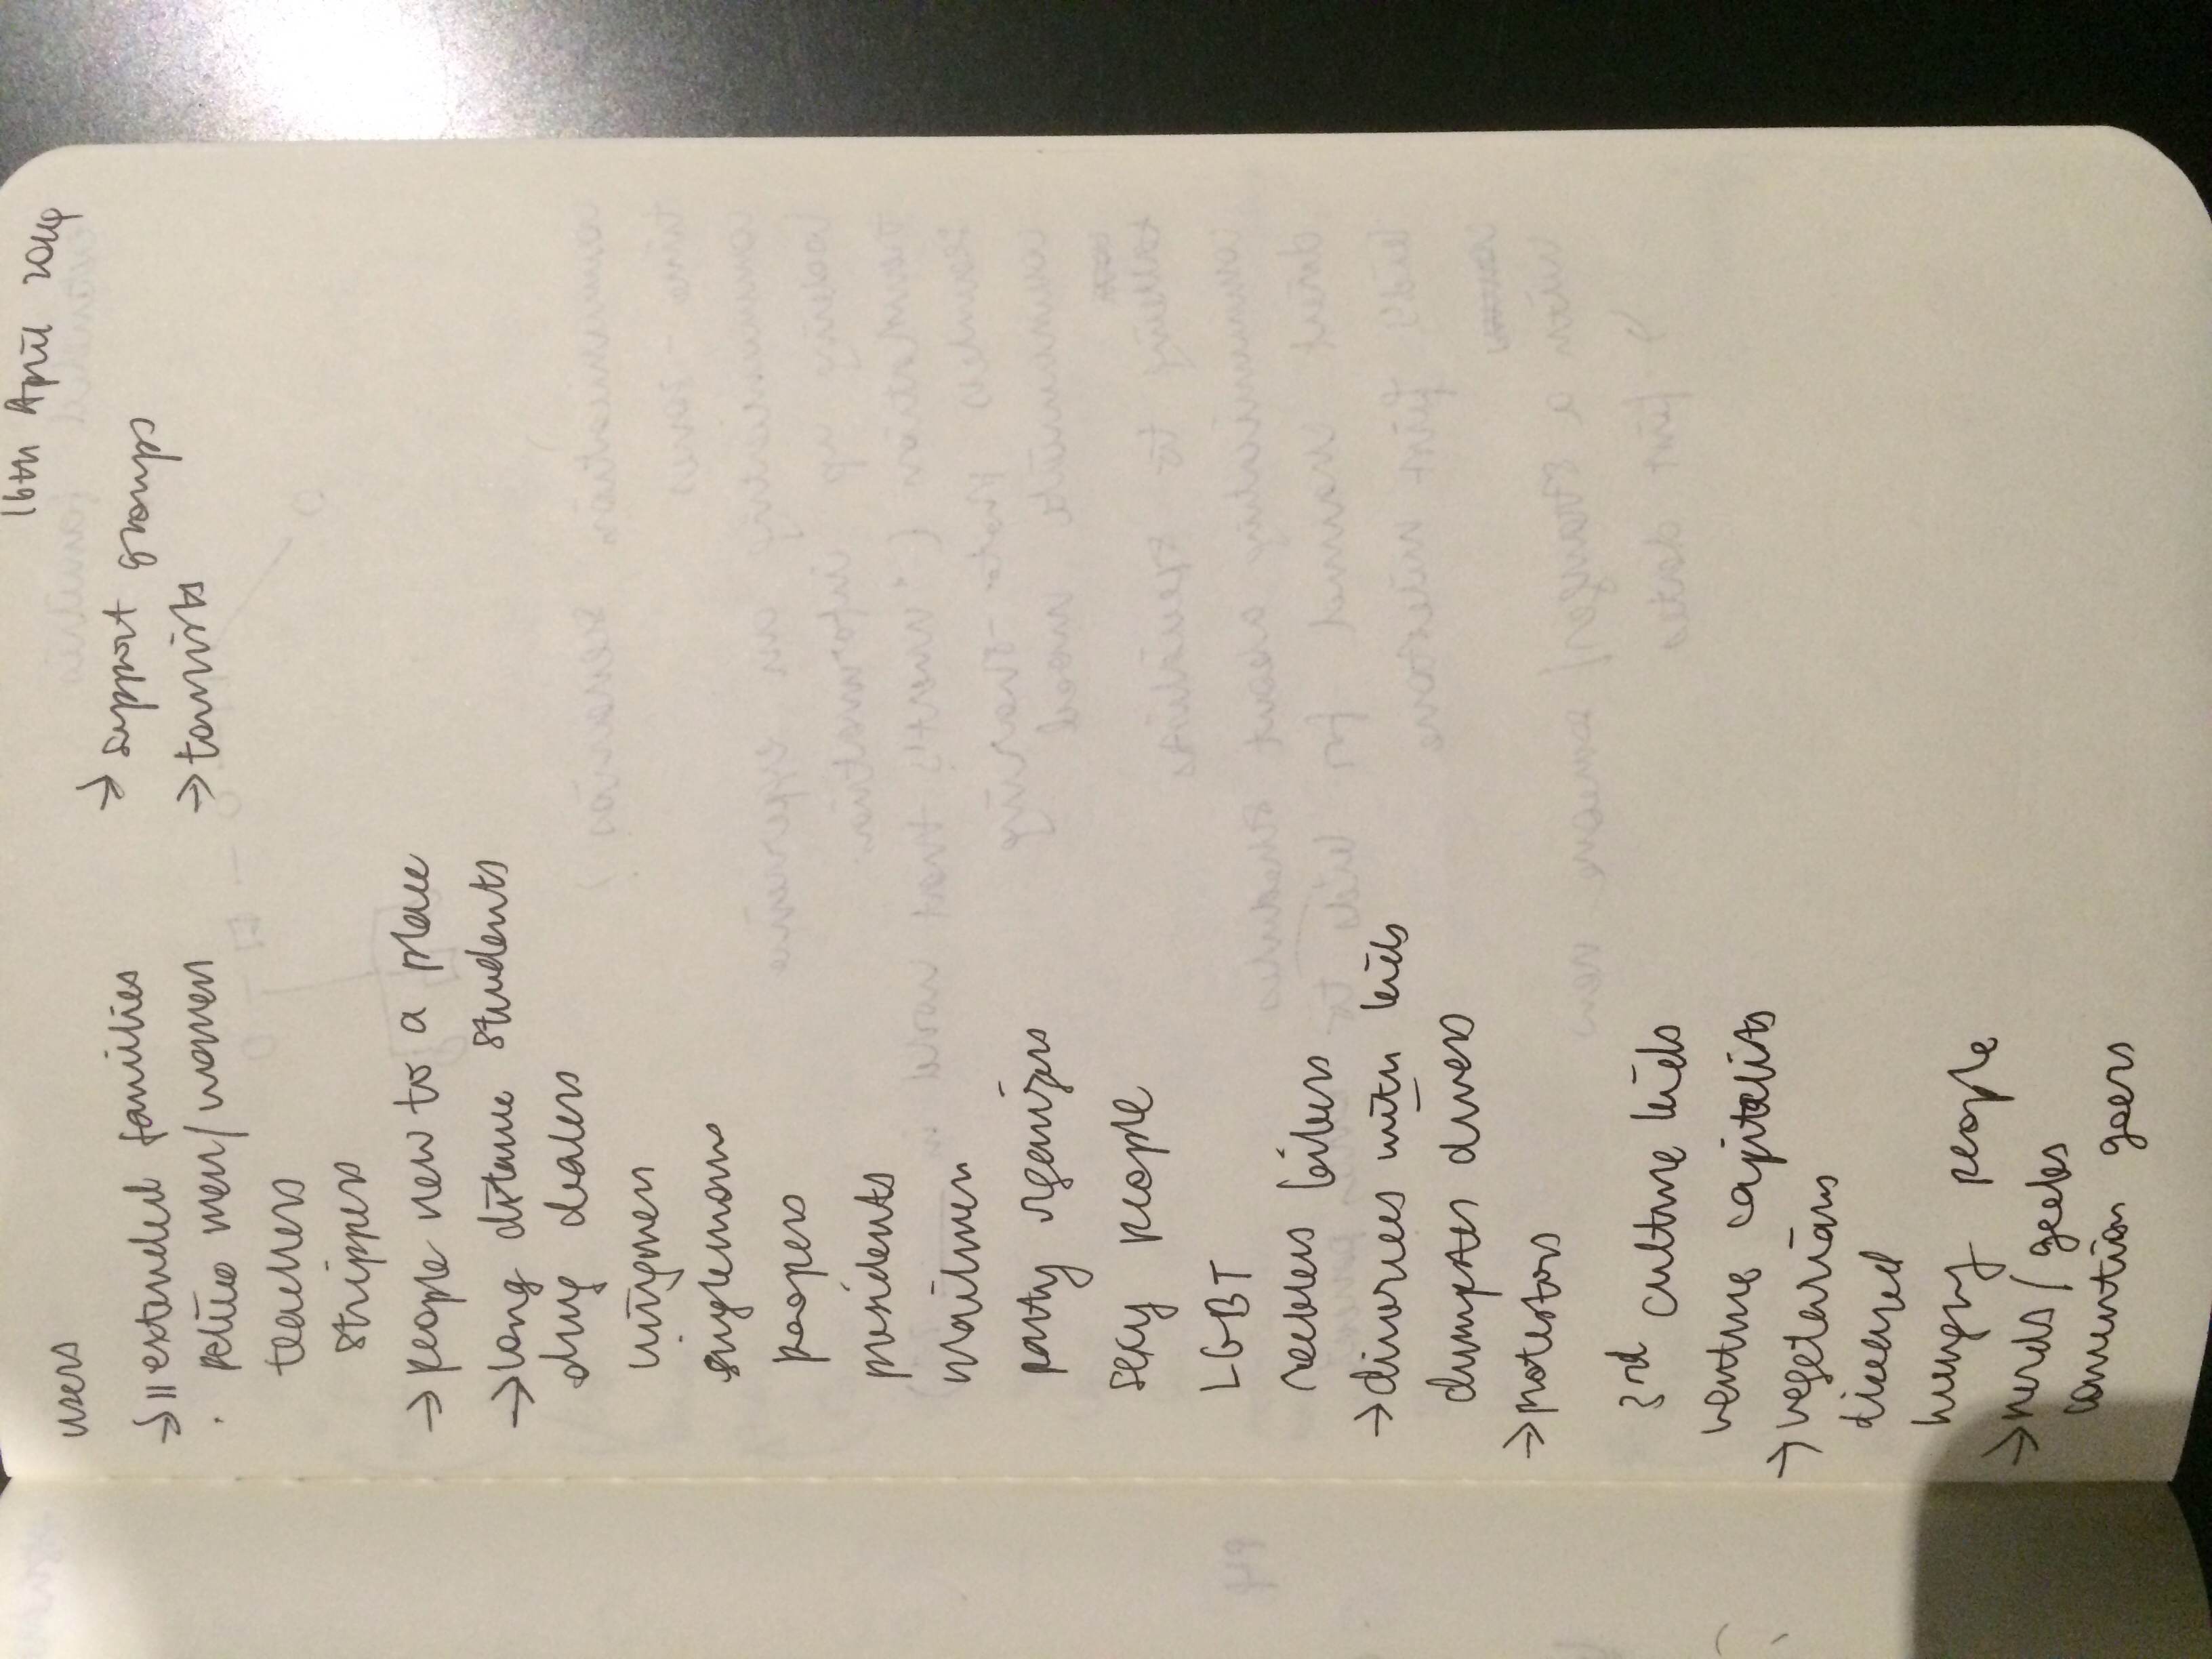 16th April 2014
users
→ || extended families
men/women
teachers
strippers
→ people new to a place
→ long distance students
drug dealers
wingmen
singlemoms
poopers
presidents
mailmen
party rganizers
sexy people
LGBT
reckless bikers
→ divorcees with kids
dumpster divers
→ protestors
3rd culture kids
venture capitalists
→ vegetarians
diseased
hungry people
→ nerds / geeks
convention goers
→ support groups
→ tourists